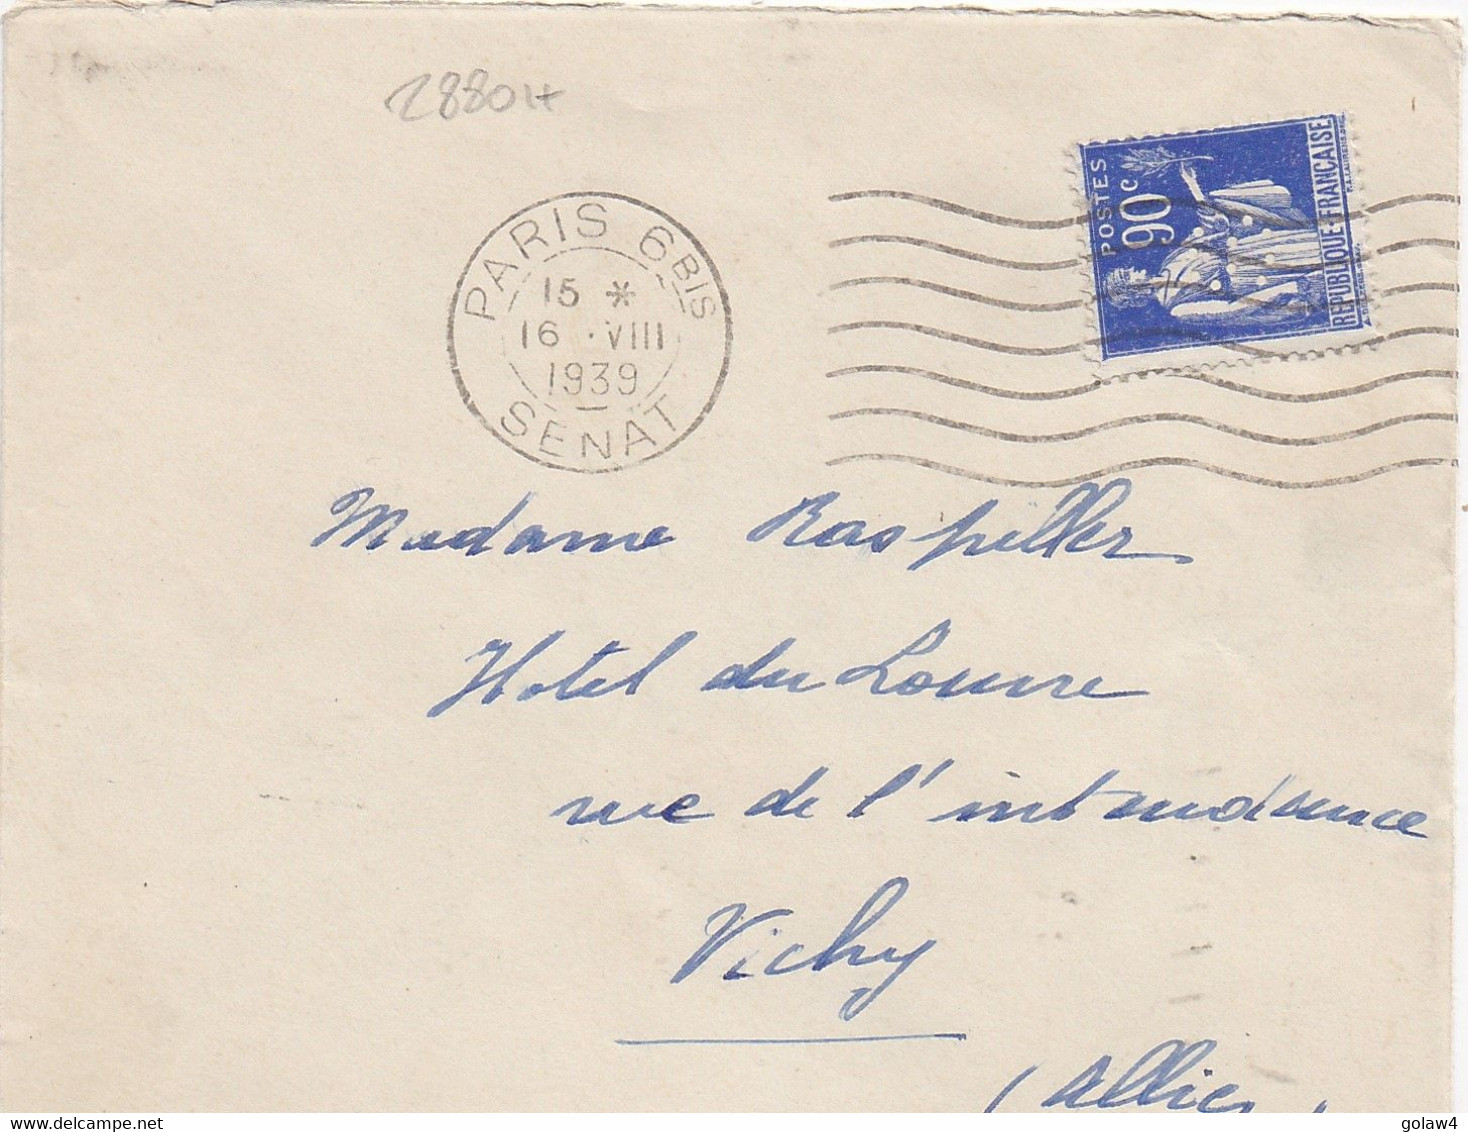 28804
PARIS 6 BIS
15 *
16 · VIII
1939
SENAT
POSTES
90c
REPUBLIQUE FRANÇAISE
Madame Raspiller
Hotel du Louvre
rue de l'intendance
Vichy
(Allier)
golaw4